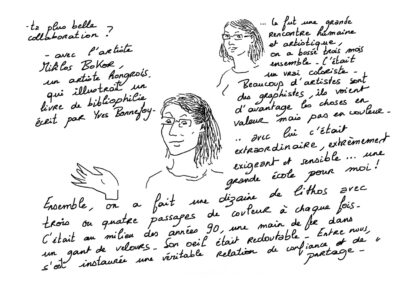 - ta plus belle
collaboration ?
- avec l'artiste
Miklos Bokor,
un artiste hongrois,
qui illustrait un
livre de bibliophilie
écrit par Yves Bonnefoy -
... ce fut une grande
rencontre humaine
et artistique,
on a bossé trois mois
ensemble - C'était
un vrai coloriste -
Beaucoup d'artistes sont
des graphistes, ils voient
d'avantage les choses en
valeur mais pas en couleur -
... avec lui c'était
extraordinaire, extrêmement
exigeant et sensible ... une
grande école pour moi !
Ensemble, on a fait une dizaine de lithos avec
trois ou quatre passages de couleur à chaque fois -
C'était au milieu des années 90, une main de fer dans
un gant de velours - Son oeil était redoutable - Entre nous,
s'est instaurée une véritable relation de confiance et de
partage -